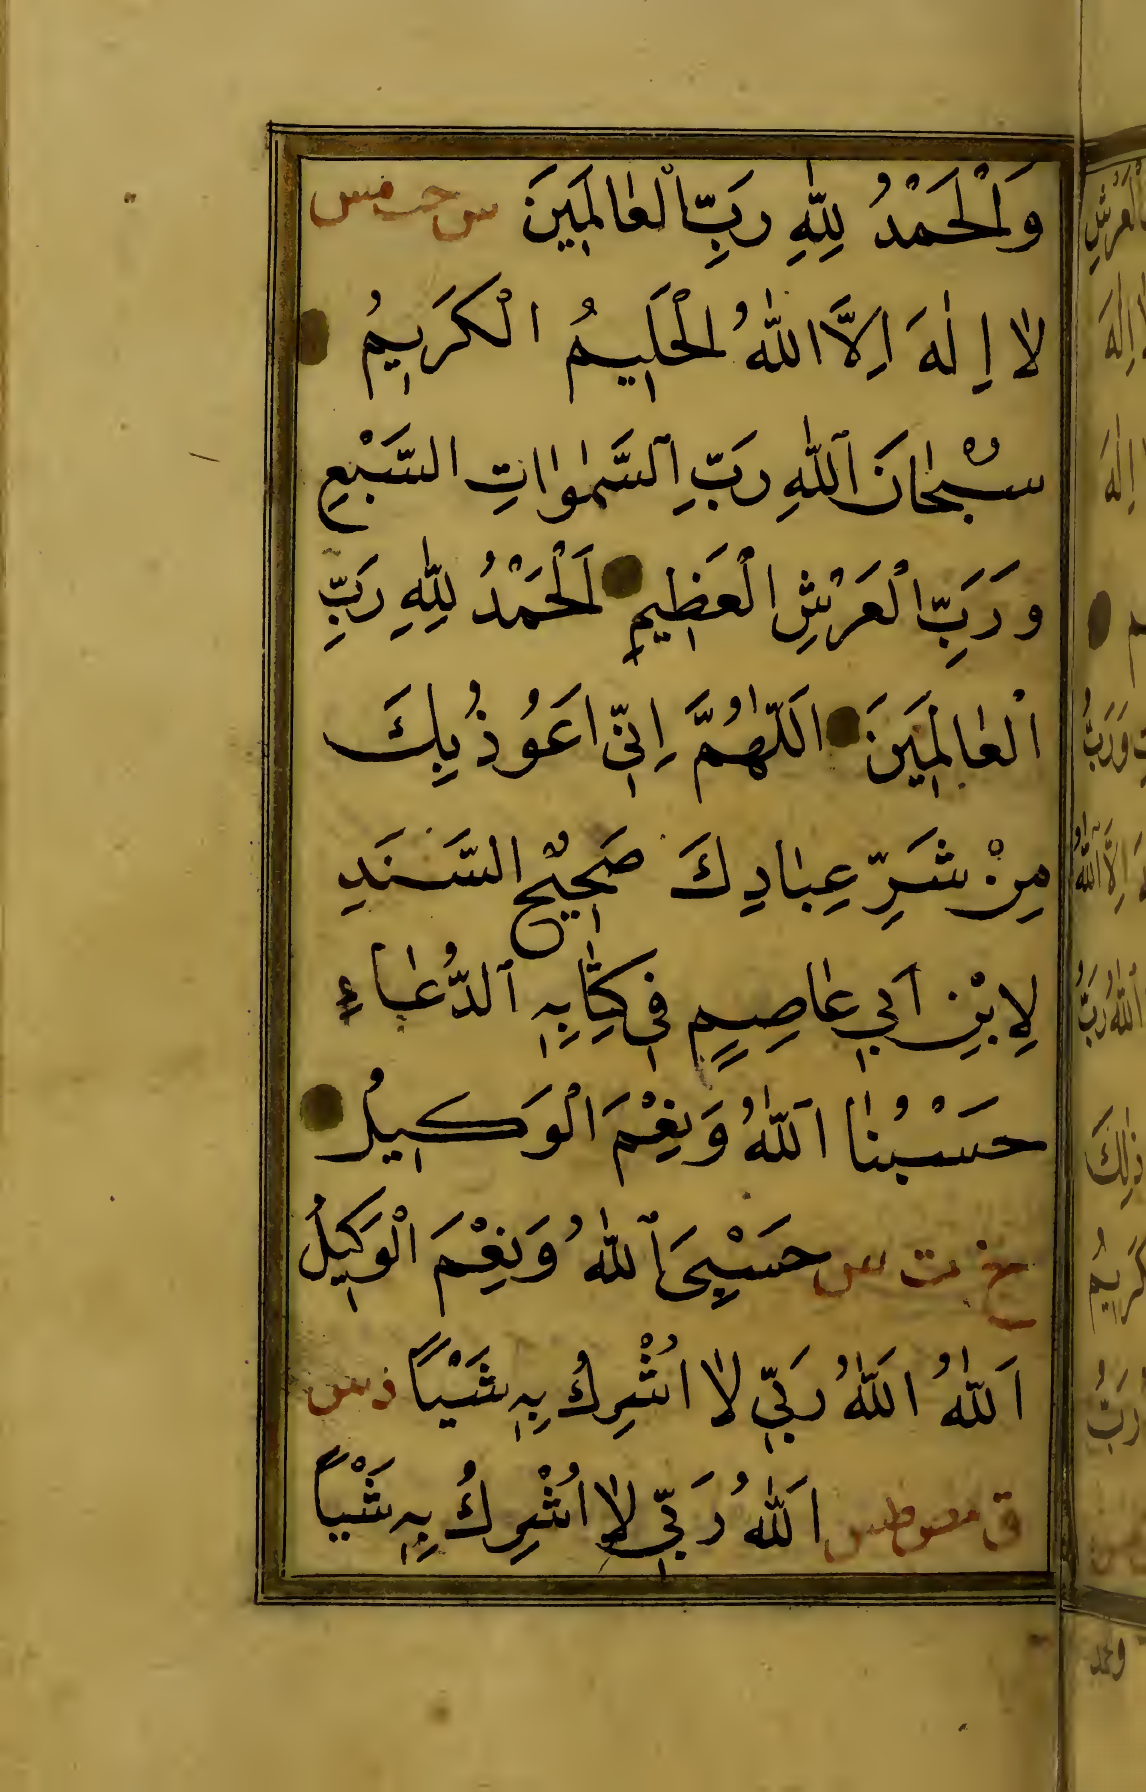 وَالْحَمْدُ لِلّٰهِ رَبِّ الْعٰالَمِينَ س حب مس
لٰا اِلٰهَ اِلَّا اللّٰهُ الْحَلِيمُ الْكَرِيمُ
سُبْحٰانَ اللّٰهِ رَبِّ السَّمٰوٰاتِ السَّبْعِ
وَرَبِّ الْعَرْشِ الْعَظِيمِ اَلْحَمْدُ لِلّٰهِ رَبِّ
الْعٰالَمِينَ اَللّٰهُمَّ اِنِّي اَعُوذُ بِكَ
مِنْ شَرِّ عِبٰادِكَ صَحِيْحُ السَّنَدِ
لِابْنِ اَبِي عٰاصِمٍ فِي كِتٰابِهِ الدُّعٰاءِ
حَسْبُنٰا اللّٰهُ وَنِعْمَ الْوَكِيلُ
خ ت س حَسْبِيَ اللّٰهُ وَنِعْمَ الْوَكِيلُ
اَللّٰهُ اَللّٰهُ رَبِّي لٰا اُشْرِكُ بِهِ شَيْئاً د س
ق مص طس اَللّٰهُ رَبِّي لٰا اُشْرِكُ بِهِ شَيْئاً